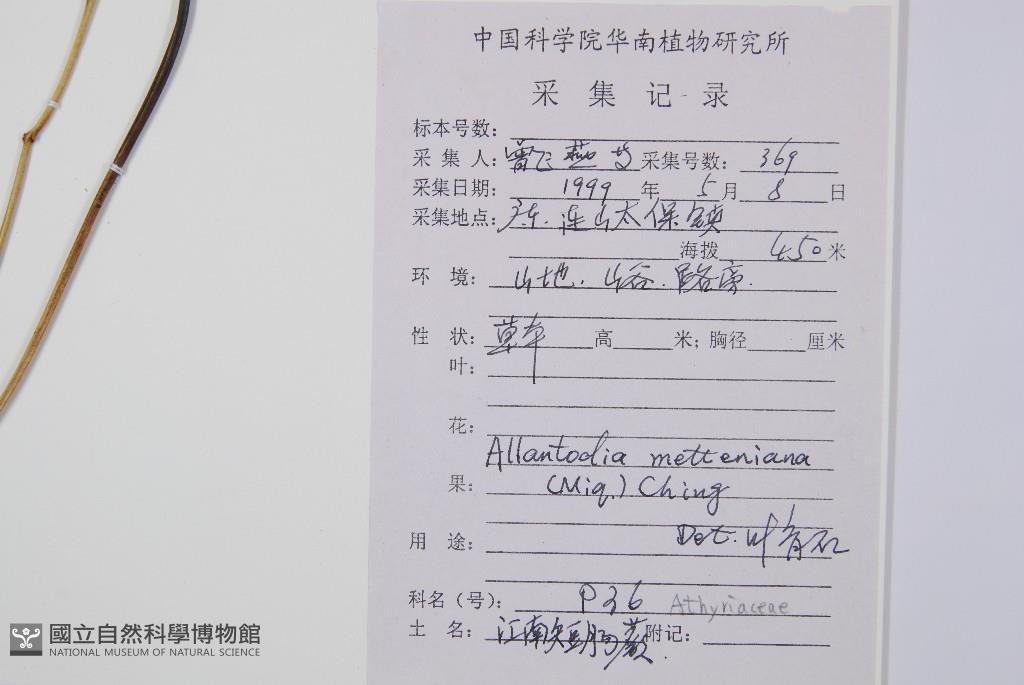 中国科学院华南植物研究所
采 集 记 录
标本号数:
采 集 人: 曾飞燕 采集号数: 369
采集日期: 1999 年 5 月 8 日
采集地点: 广东. 连山太保镇
海拨 450 米
环 境: 山地. 山谷. 路旁.
性 状: 草本 高 米; 胸径 厘米
叶:
花:
Allantodia metteniana
果: (Miq.) Ching
Det. 叶育石
用 途:
科名(号): P36 Athyriaceae
土 名: 江南短肠蕨. 附记:
國立自然科學博物館
NATIONAL MUSEUM OF NATURAL SCIENCE